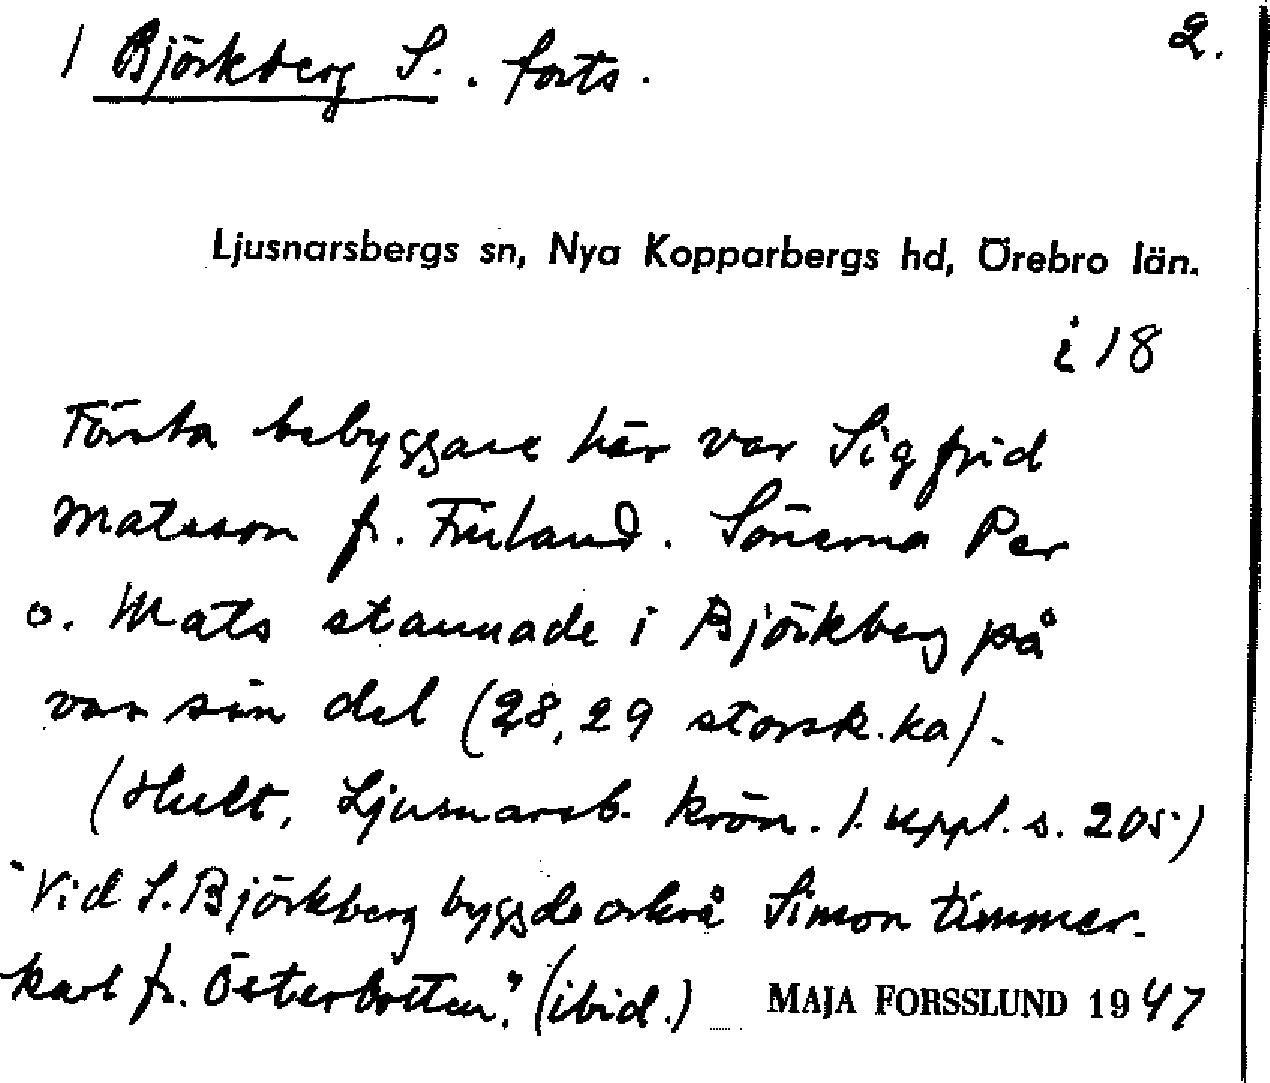 1 Björkberg S. . forts. 2.
Ljusnarsbergs sn, Nya Kopparbergs hd, Örebro län.
i 18
Första bebyggare här var Sigfrid
Matsson fr. Finland. Sönerna Per
o. Mats stannade i Björkberg på
var sin del (28, 29 storsk.ka).
(Hult, Ljusnarsb. krön. 1. uppl. s. 205)
"Vid S. Björkberg byggde också Simon timmer-
karl fr. Österbotten." (ibid.) MAJA FORSSLUND 1947